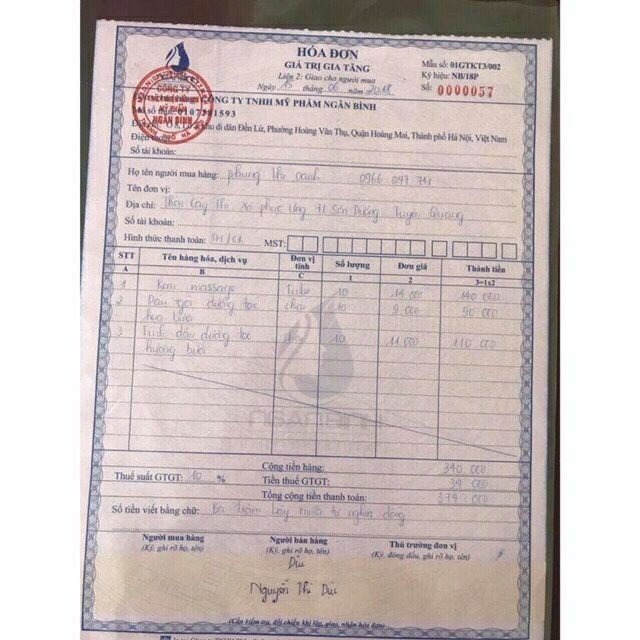 HÓA ĐƠN
GIÁ TRỊ GIA TĂNG
Liên 2: Giao cho người mua
Ngày 15 tháng 06 năm 2018
Mẫu số: 01GTKT3/002
Ký hiệu: NB/18P
Số: 0000057
CÔNG TY TNHH MỸ PHẨM NGÂN BÌNH
Mã số thuế: 0107281593
khu di dân Đền Lừ, Phường Hoàng Văn Thụ, Quận Hoàng Mai, Thành phố Hà Nội, Việt Nam
Điện thoại:
Số tài khoản:
CÔNG TY
MỸ PHẨM
NGÂN BÌNH
Họ tên người mua hàng: phùng thị oanh 0966 097 741
Tên đơn vị:
Địa chỉ: Thôn Cây Thị xã phúc ứng H Sơn Dương Tuyên Quang
Số tài khoản:
Hình thức thanh toán: TM/CK MST:
STT Tên hàng hóa, dịch vụ Đơn vị tính Số lượng Đơn giá Thành tiền
A B C 1 2 3=1x2
1 Kem massage Tube 10 14 000 140 000
2 Dầu gội dưỡng tóc chai 10 9 000 90 000
hoa bưởi
3 Tinh dầu dưỡng tóc chai 10 11 000 110 000
hương bưởi
Cộng tiền hàng: 340 000
Thuế suất GTGT: 10 % Tiền thuế GTGT: 34 000
Tổng cộng tiền thanh toán: 374 000
Số tiền viết bằng chữ: Ba trăm bảy mươi tư nghìn đồng
Người mua hàng Người bán hàng Thủ trưởng đơn vị
(Ký, ghi rõ họ, tên) (Ký, ghi rõ họ, tên) (Ký, đóng dấu, ghi rõ họ, tên)
Nguyễn Thị
(Cần kiểm tra, đối chiếu khi lập, giao, nhận hóa đơn)